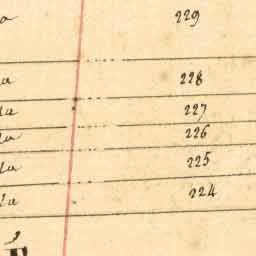 a 229
la 228
la 227
la 226
la 225
la 224